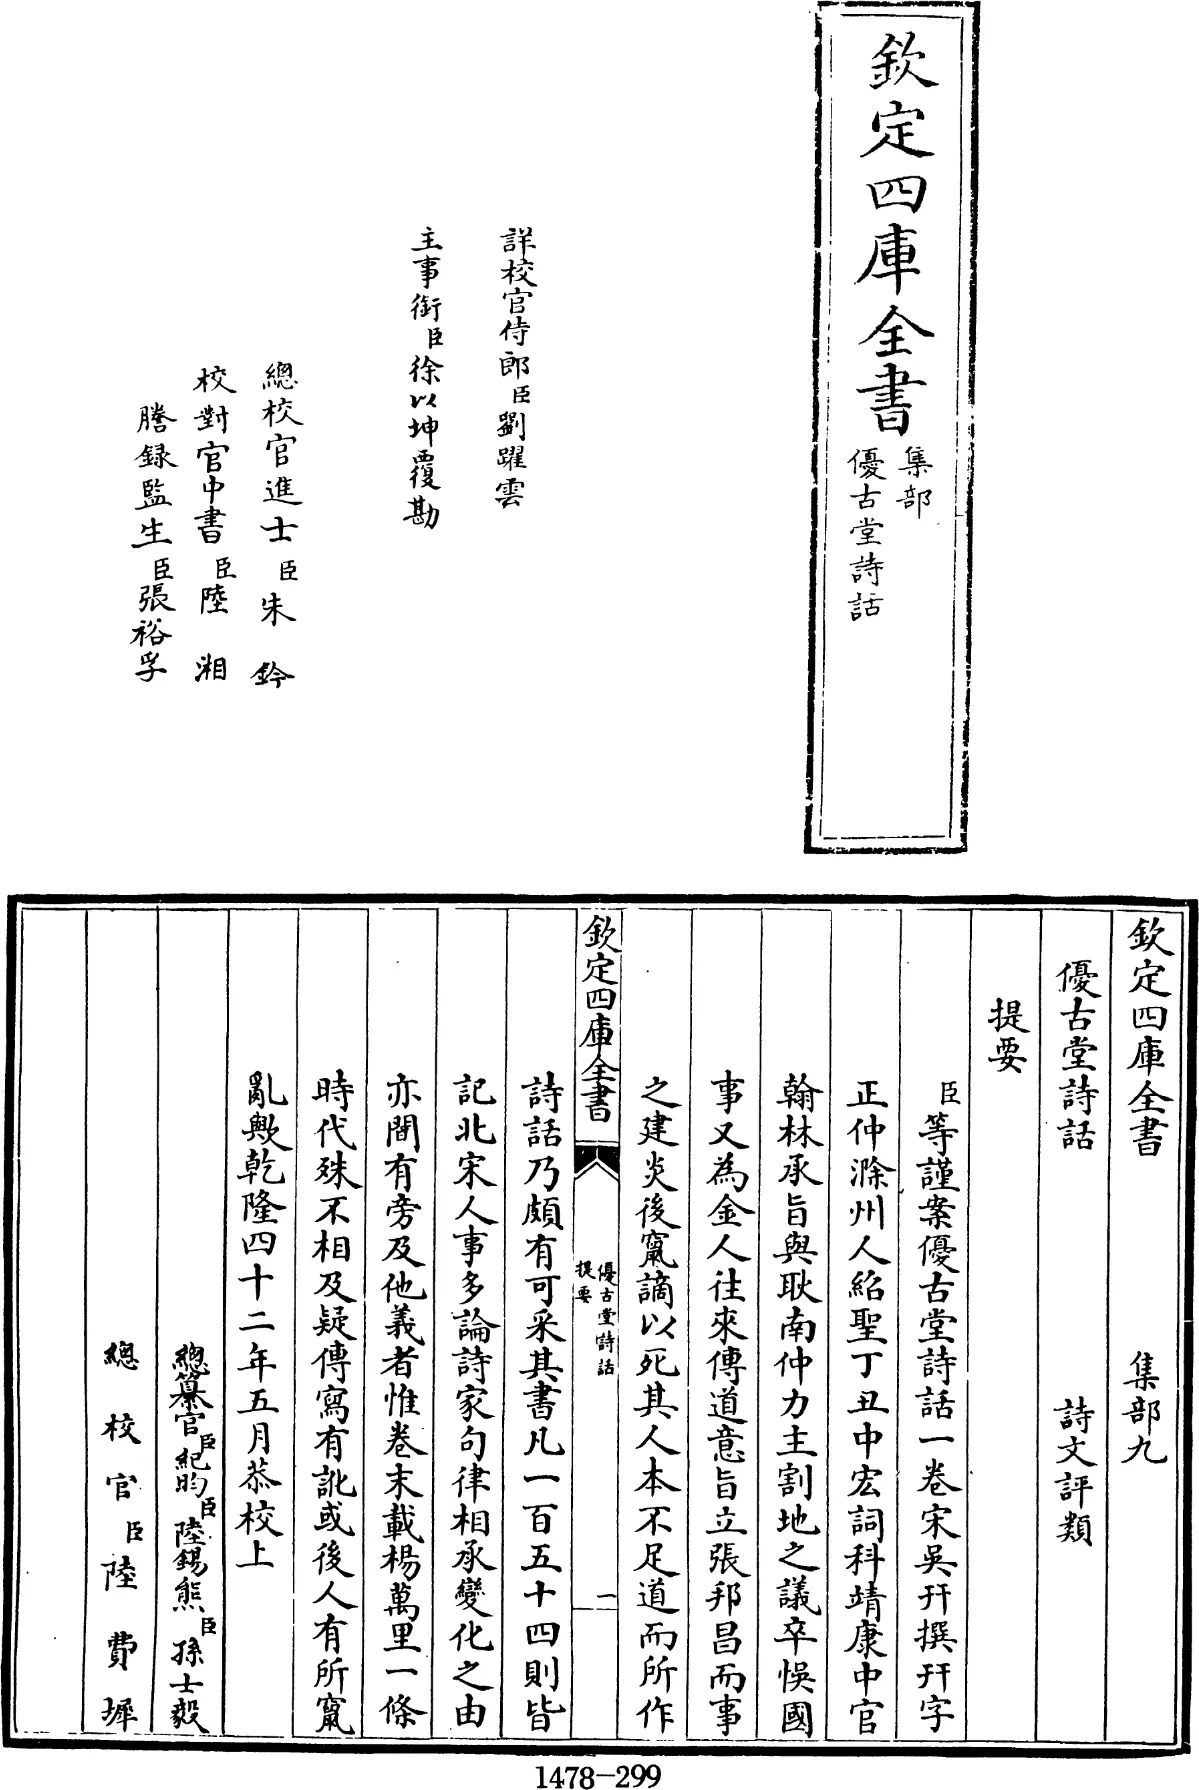 欽定四庫全書
集部
優古堂詩話
詳校官侍郎臣劉躍雲
主事銜臣徐以坤覆勘
總校官進士臣朱鈐
校對官中書臣陸湘
謄録監生臣張裕孚
欽定四庫全書 集部九
優古堂詩話 詩文評類
提要
臣等謹案優古堂詩話一卷宋吳幵撰幵字
正仲滁州人紹聖丁丑中宏詞科靖康中官
翰林承旨與耿南仲力主割地之議卒悞國
事又為金人往來傳道意旨立張邦昌而事
之建炎後竄謫以死其人本不足道而所作
欽定四庫全書
優古堂詩話
提要
一
詩話乃頗有可采其書凡一百五十四則皆
記北宋人事多論詩家句律相承變化之由
亦間有旁及他義者惟卷末載楊萬里一條
時代殊不相及疑傳寫有訛或後人有所竄
亂歟乾隆四十二年五月恭校上
總纂官臣紀昀臣陸錫熊臣孫士毅
總校官臣陸費墀
1478-299